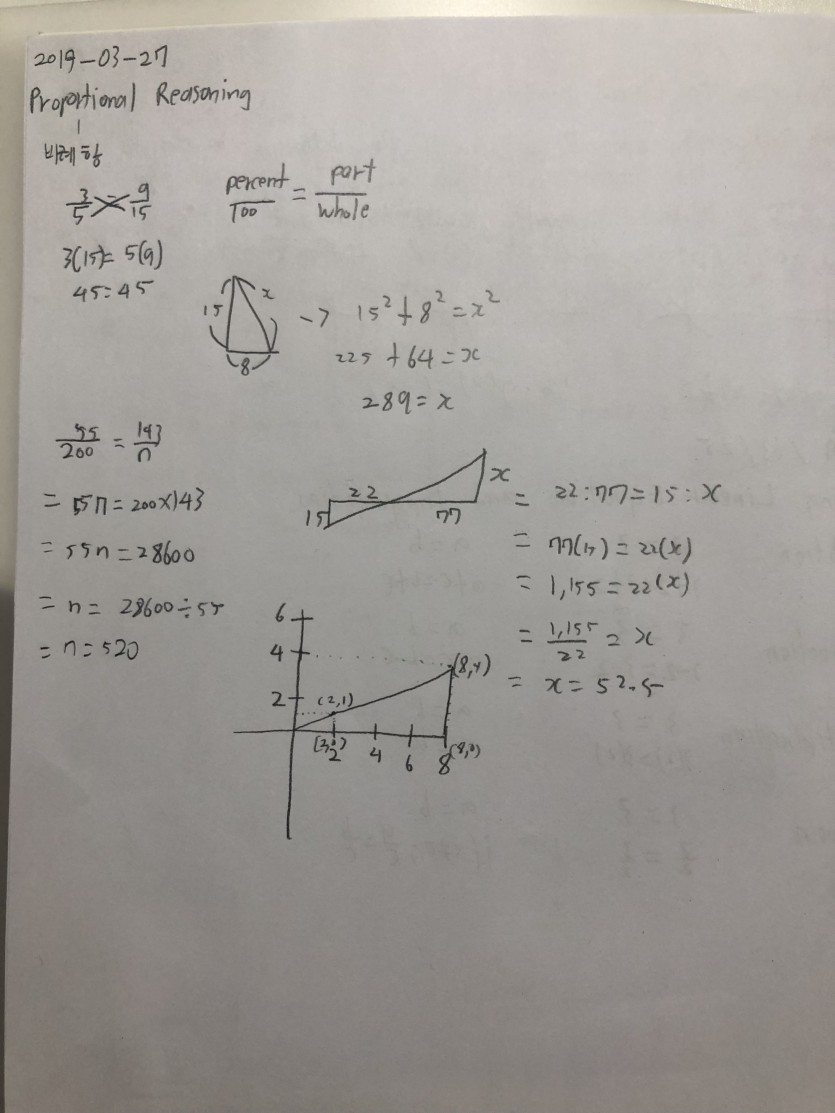 2019-03-27
Proportional Reasoning
비례항
3/5 = 9/15
percent/100 = part/whole
3(15)= 5(9)
45=45
15 x 8
-> 15² + 8² = x²
225 + 64 = x
289 = x
55/200 = 143/n
= 55n = 200×143
= 55n = 28600
= n = 28600÷55
= n = 520
22 x
15 77
= 22:77=15:x
= 77(15) = 22(x)
= 1,155 = 22(x)
= 1,155/22 = x
= x = 52.5
6
4 (8,4)
2 (2,1)
2 4 6 8 (8,0)